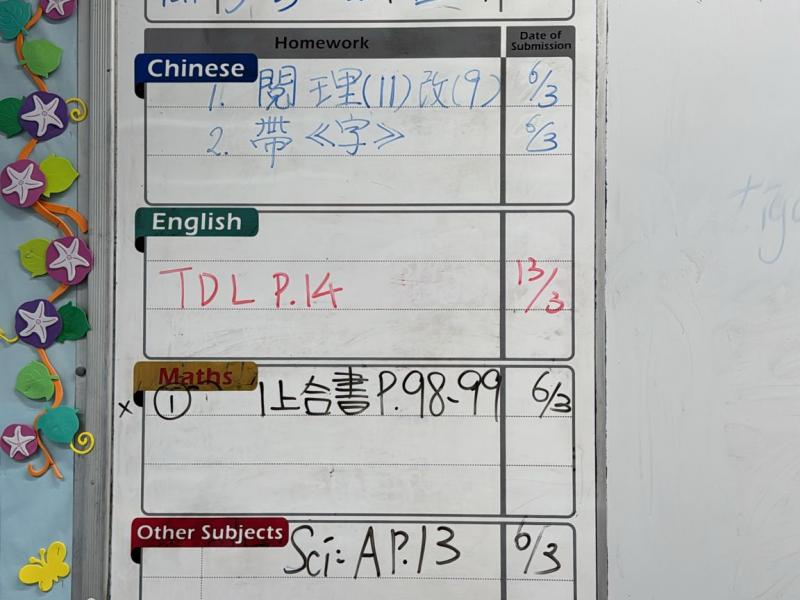 Homework Date of Submission
Chinese
1. 閱理(11)改(9) 6/3
2. 帶《字》 6/3
English
TDL P.14 13/3
Maths
× ① 1上合書P.98-99 6/3
Other Subjects
Sci: A P.13 6/3